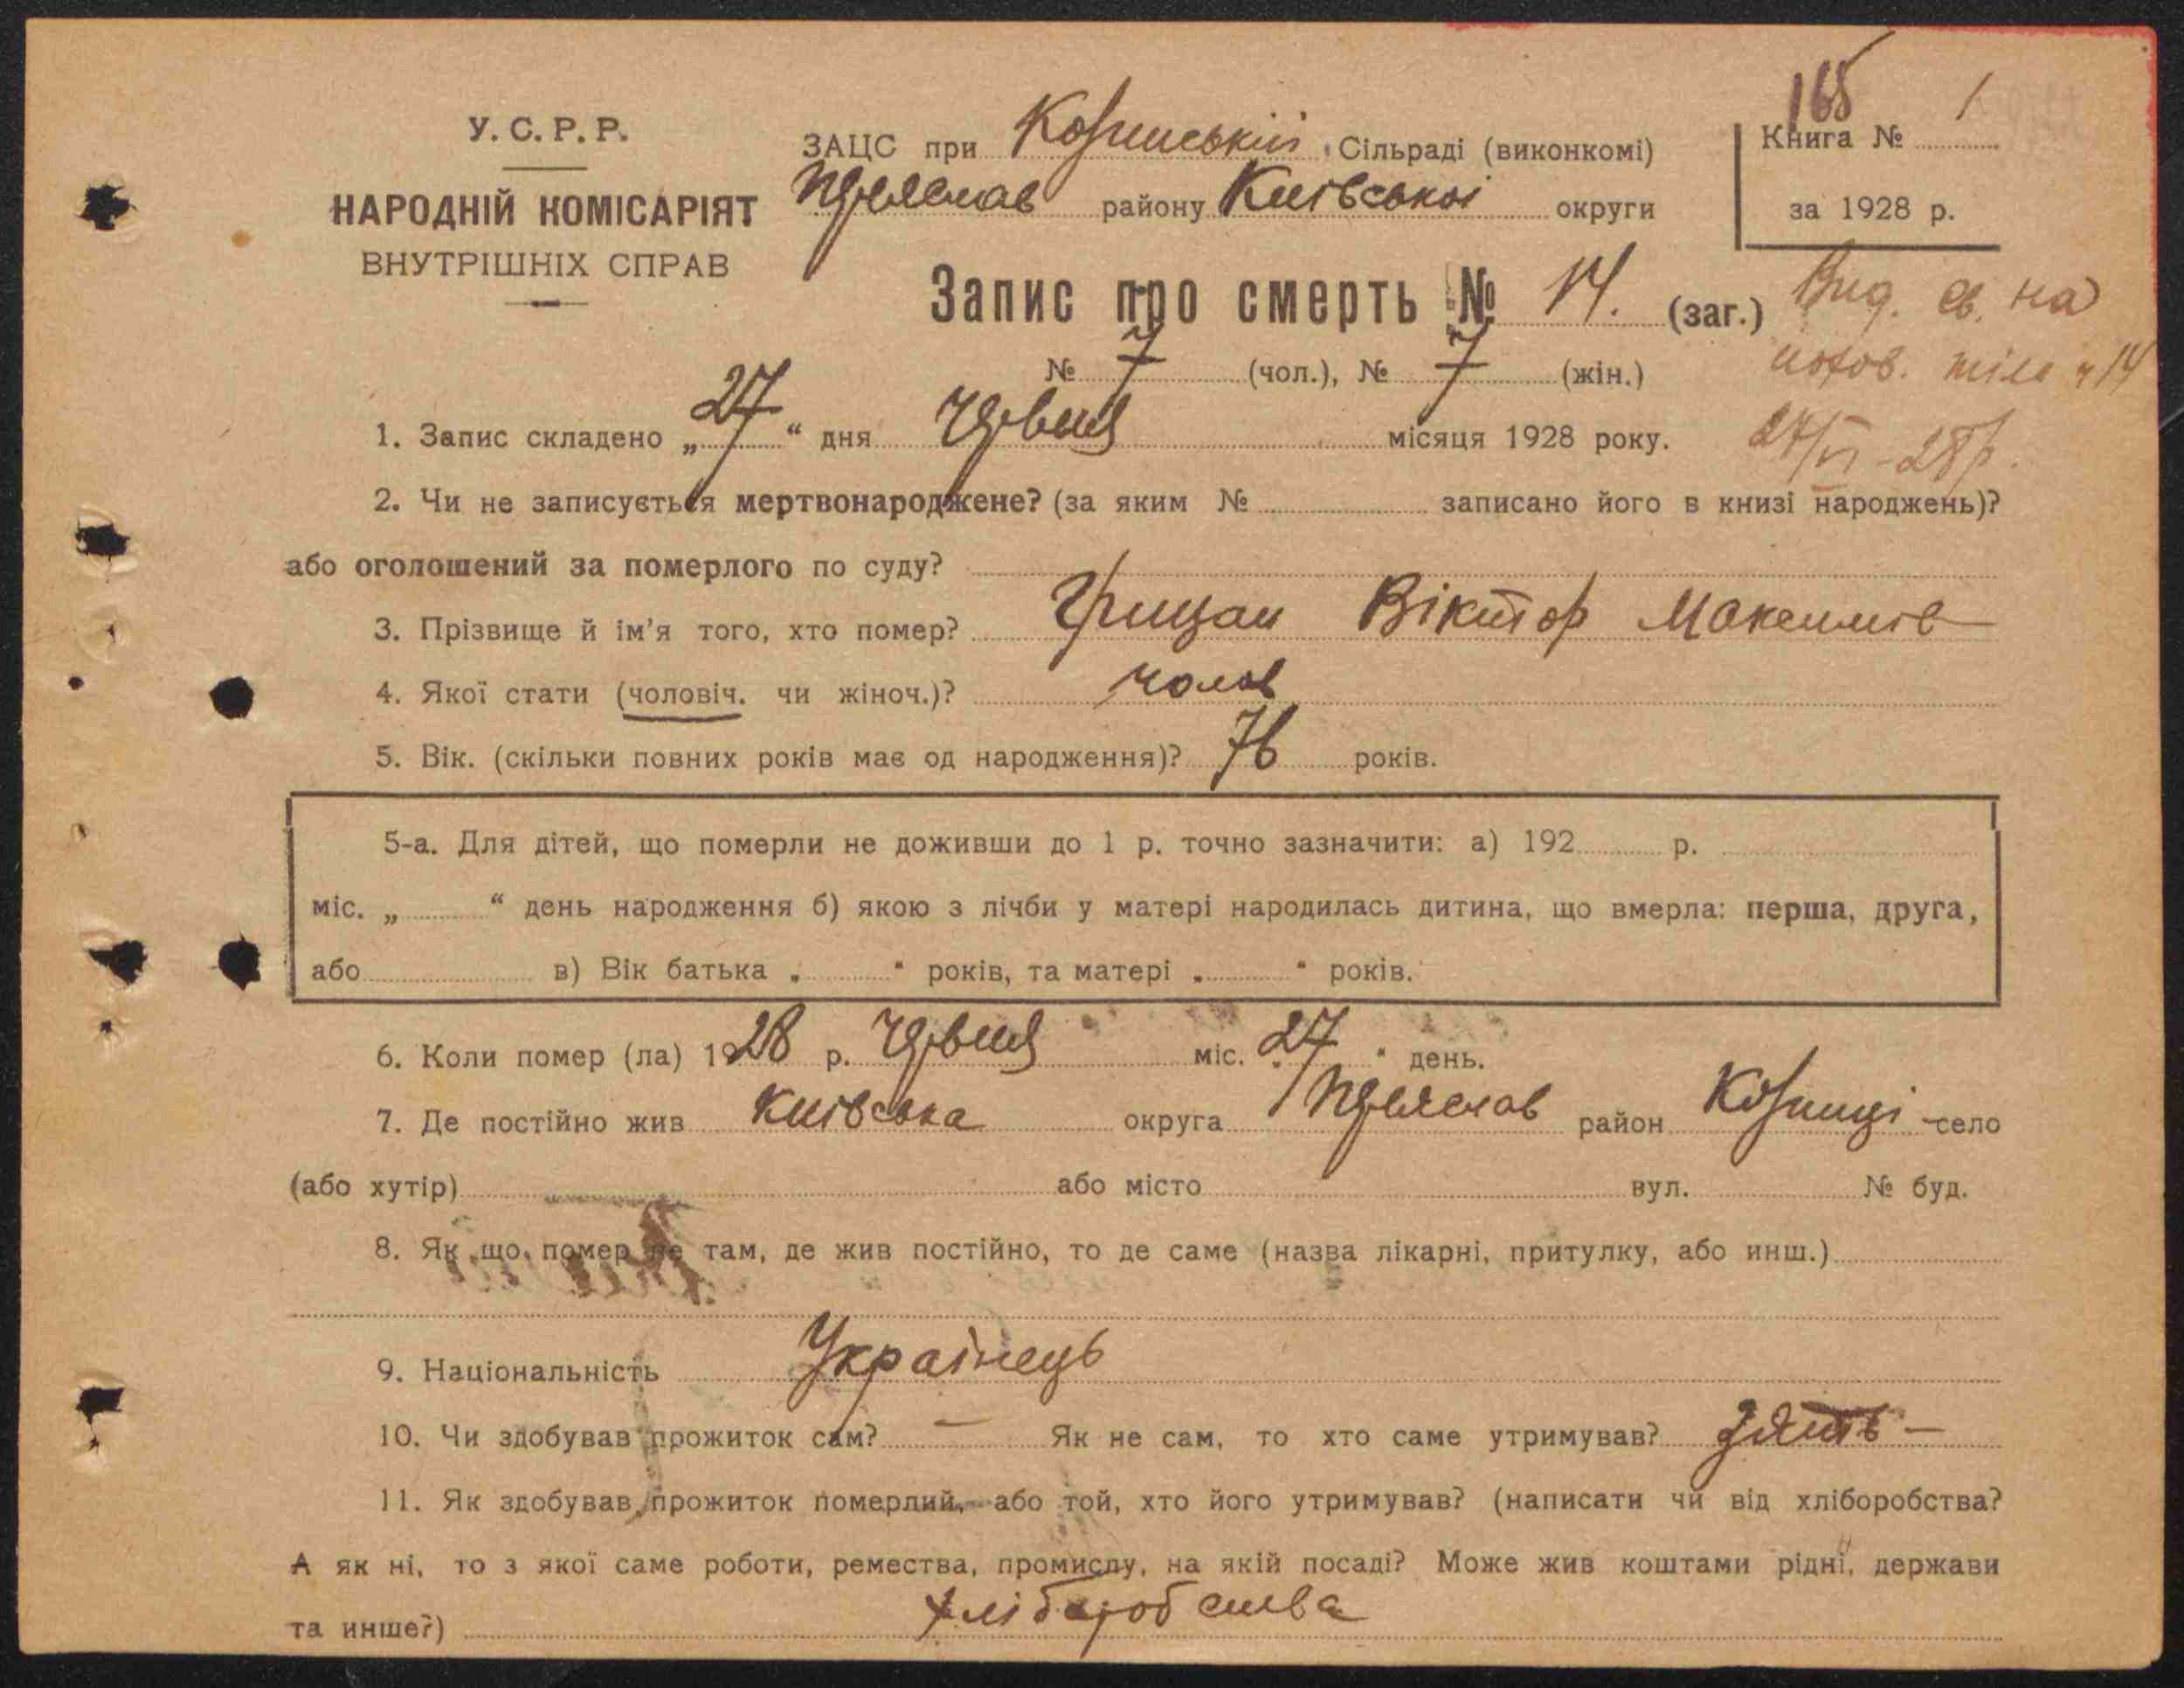 165 1
У. С. Р. Р.
НАРОДНІЙ КОМІСАРІЯТ
ВНУТРІШНІХ СПРАВ
ЗАЦС при Козинській Сільраді (виконкомі)
Переяслав району Київської округи
Книга №
за 1928 р.
Запис про смерть № 14. (заг.)
№ 7 (чол.), № 7 (жін.)
Вид. св. на
похов. тіла ч 14
27/VI-28р.
1. Запис складено „27“ дня червня місяця 1928 року.
2. Чи не записується мертвонароджене? (за яким № записано його в книзі народжень)?
або оголошений за померлого по суду?
3. Прізвище й ім'я того, хто помер? Грицан Віктор Максимів
4. Якої стати (чоловіч. чи жіноч.)? чолов
5. Вік. (скільки повних років має од народження)? 76 років.
5-а. Для дітей, що померли не доживши до 1 р. точно зазначити: а) 192 р.
міс. „ “ день народження б) якою з лічби у матері народилась дитина, що вмерла: перша, друга,
або в) Вік батька „ “ років, та матері „ “ років.
6. Коли помер (ла) 1928 р. червня міс. „27“ день.
7. Де постійно жив Київська округа Переяслав район Козинці село
(або хутір) або місто вул. № буд.
8. Як що помер не там, де жив постійно, то де саме (назва лікарні, притулку, або инш.)
9. Національність Українець
10. Чи здобував прожиток сам? — Як не сам, то хто саме утримував? Зять —
11. Як здобував прожиток померлий, або той, хто його утримував? (написати чи від хліборобства?
А як ні, то з якої саме роботи, ремества, промислу, на якій посаді? Може жив коштами рідні, держави
та инше?) хліборобства